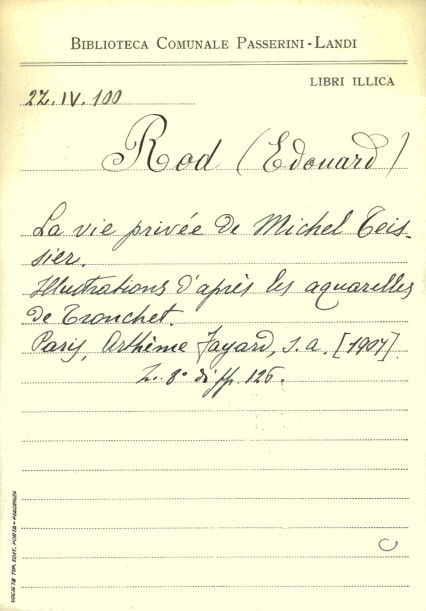 BIBLIOTECA COMUNALE PASSERINI-LANDI
LIBRI ILLICA
2Z.IV.100
Rod (Edouard)
La vie privée de Michel Teis-
sier.
Illustrations d'après les aquarelles
de Tronchet.
Paris, Arthème Fayard, s.a. [1907].
8° di pp. 126.
SOCIETÀ TIP. EDIT. PORTA - PIACENZA